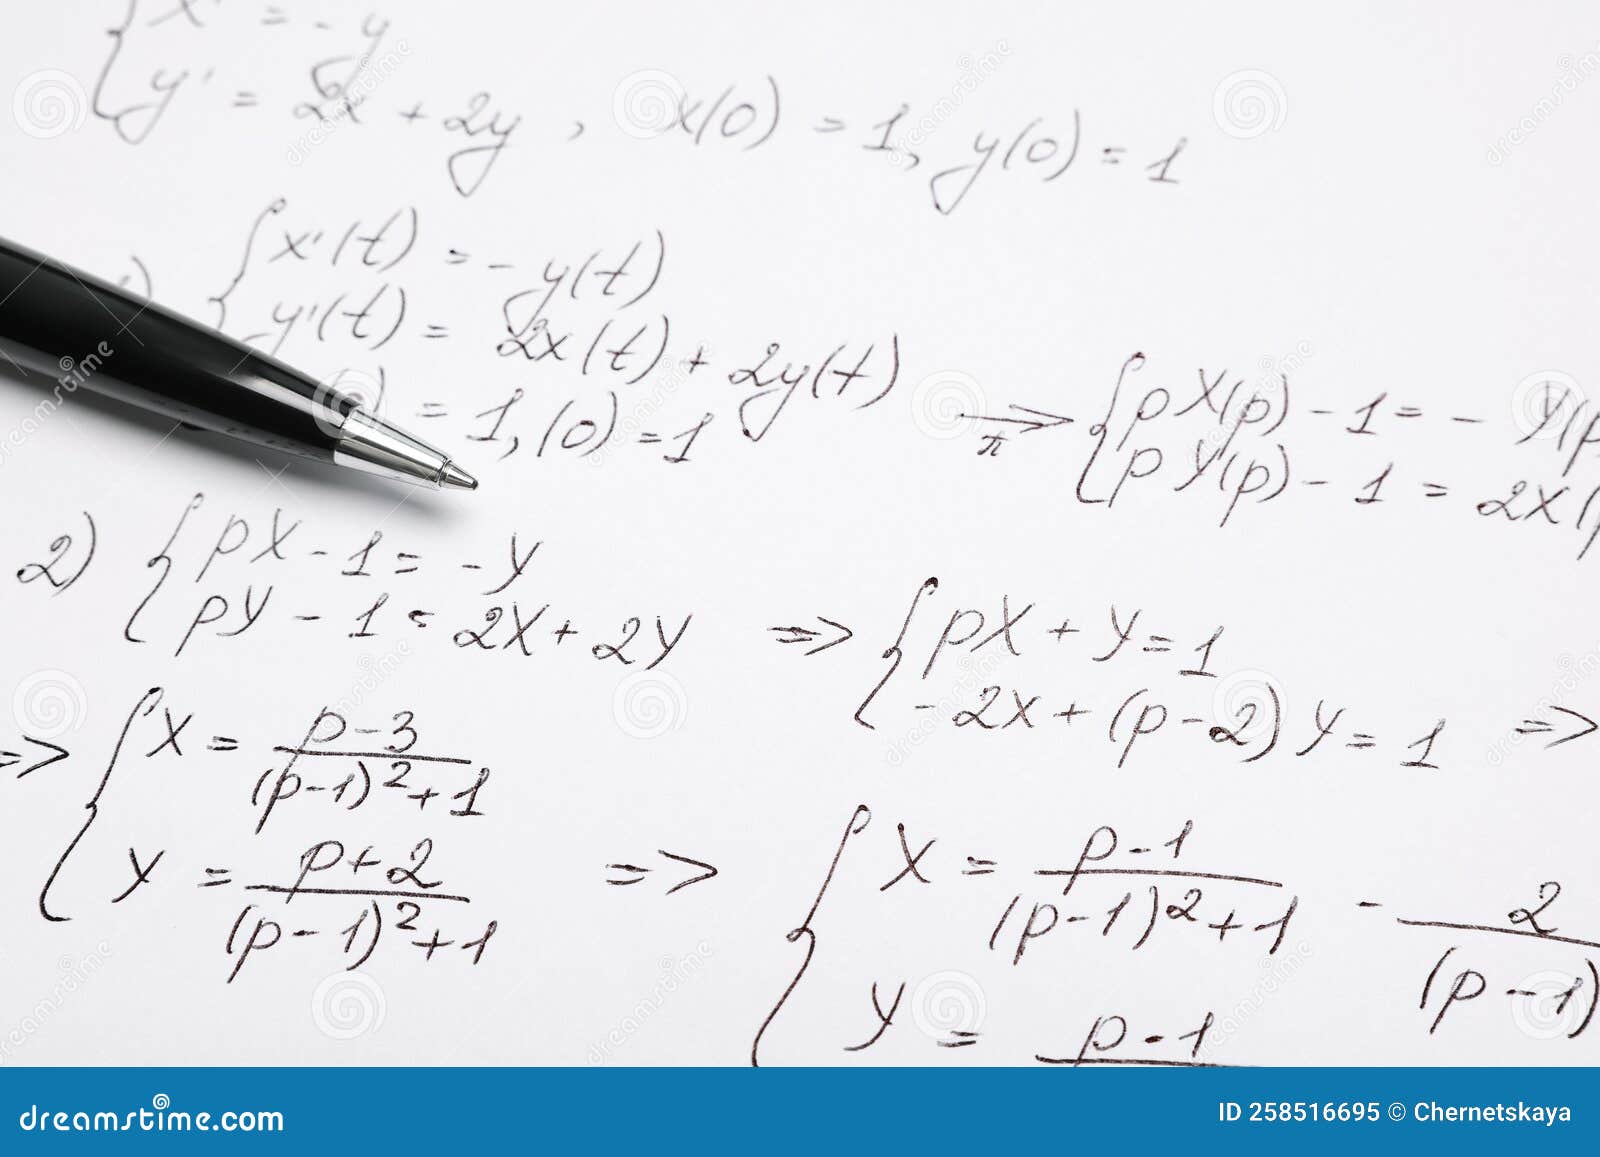 { x' = - y
y' = 2x + 2y , x(0) = 1, y(0) = 1
{ x'(t) = - y(t)
y'(t) = 2x(t) + 2y(t)
= 1, (0) = 1
⇒ { pX(p) - 1 = - Y(p
pY(p) - 1 = 2X(p
2) { pX - 1 = - Y
pY - 1 = 2X + 2Y
=> { pX + Y = 1
- 2X + (p - 2) Y = 1 =>
=> { X = p - 3 / (p-1)² + 1
Y = p + 2 / (p - 1)² + 1
=> { X = p - 1 / (p - 1)² + 1 - 2 / (p - 1)
Y = p - 1
dreamstime.com
ID 258516695 © Chernetskaya